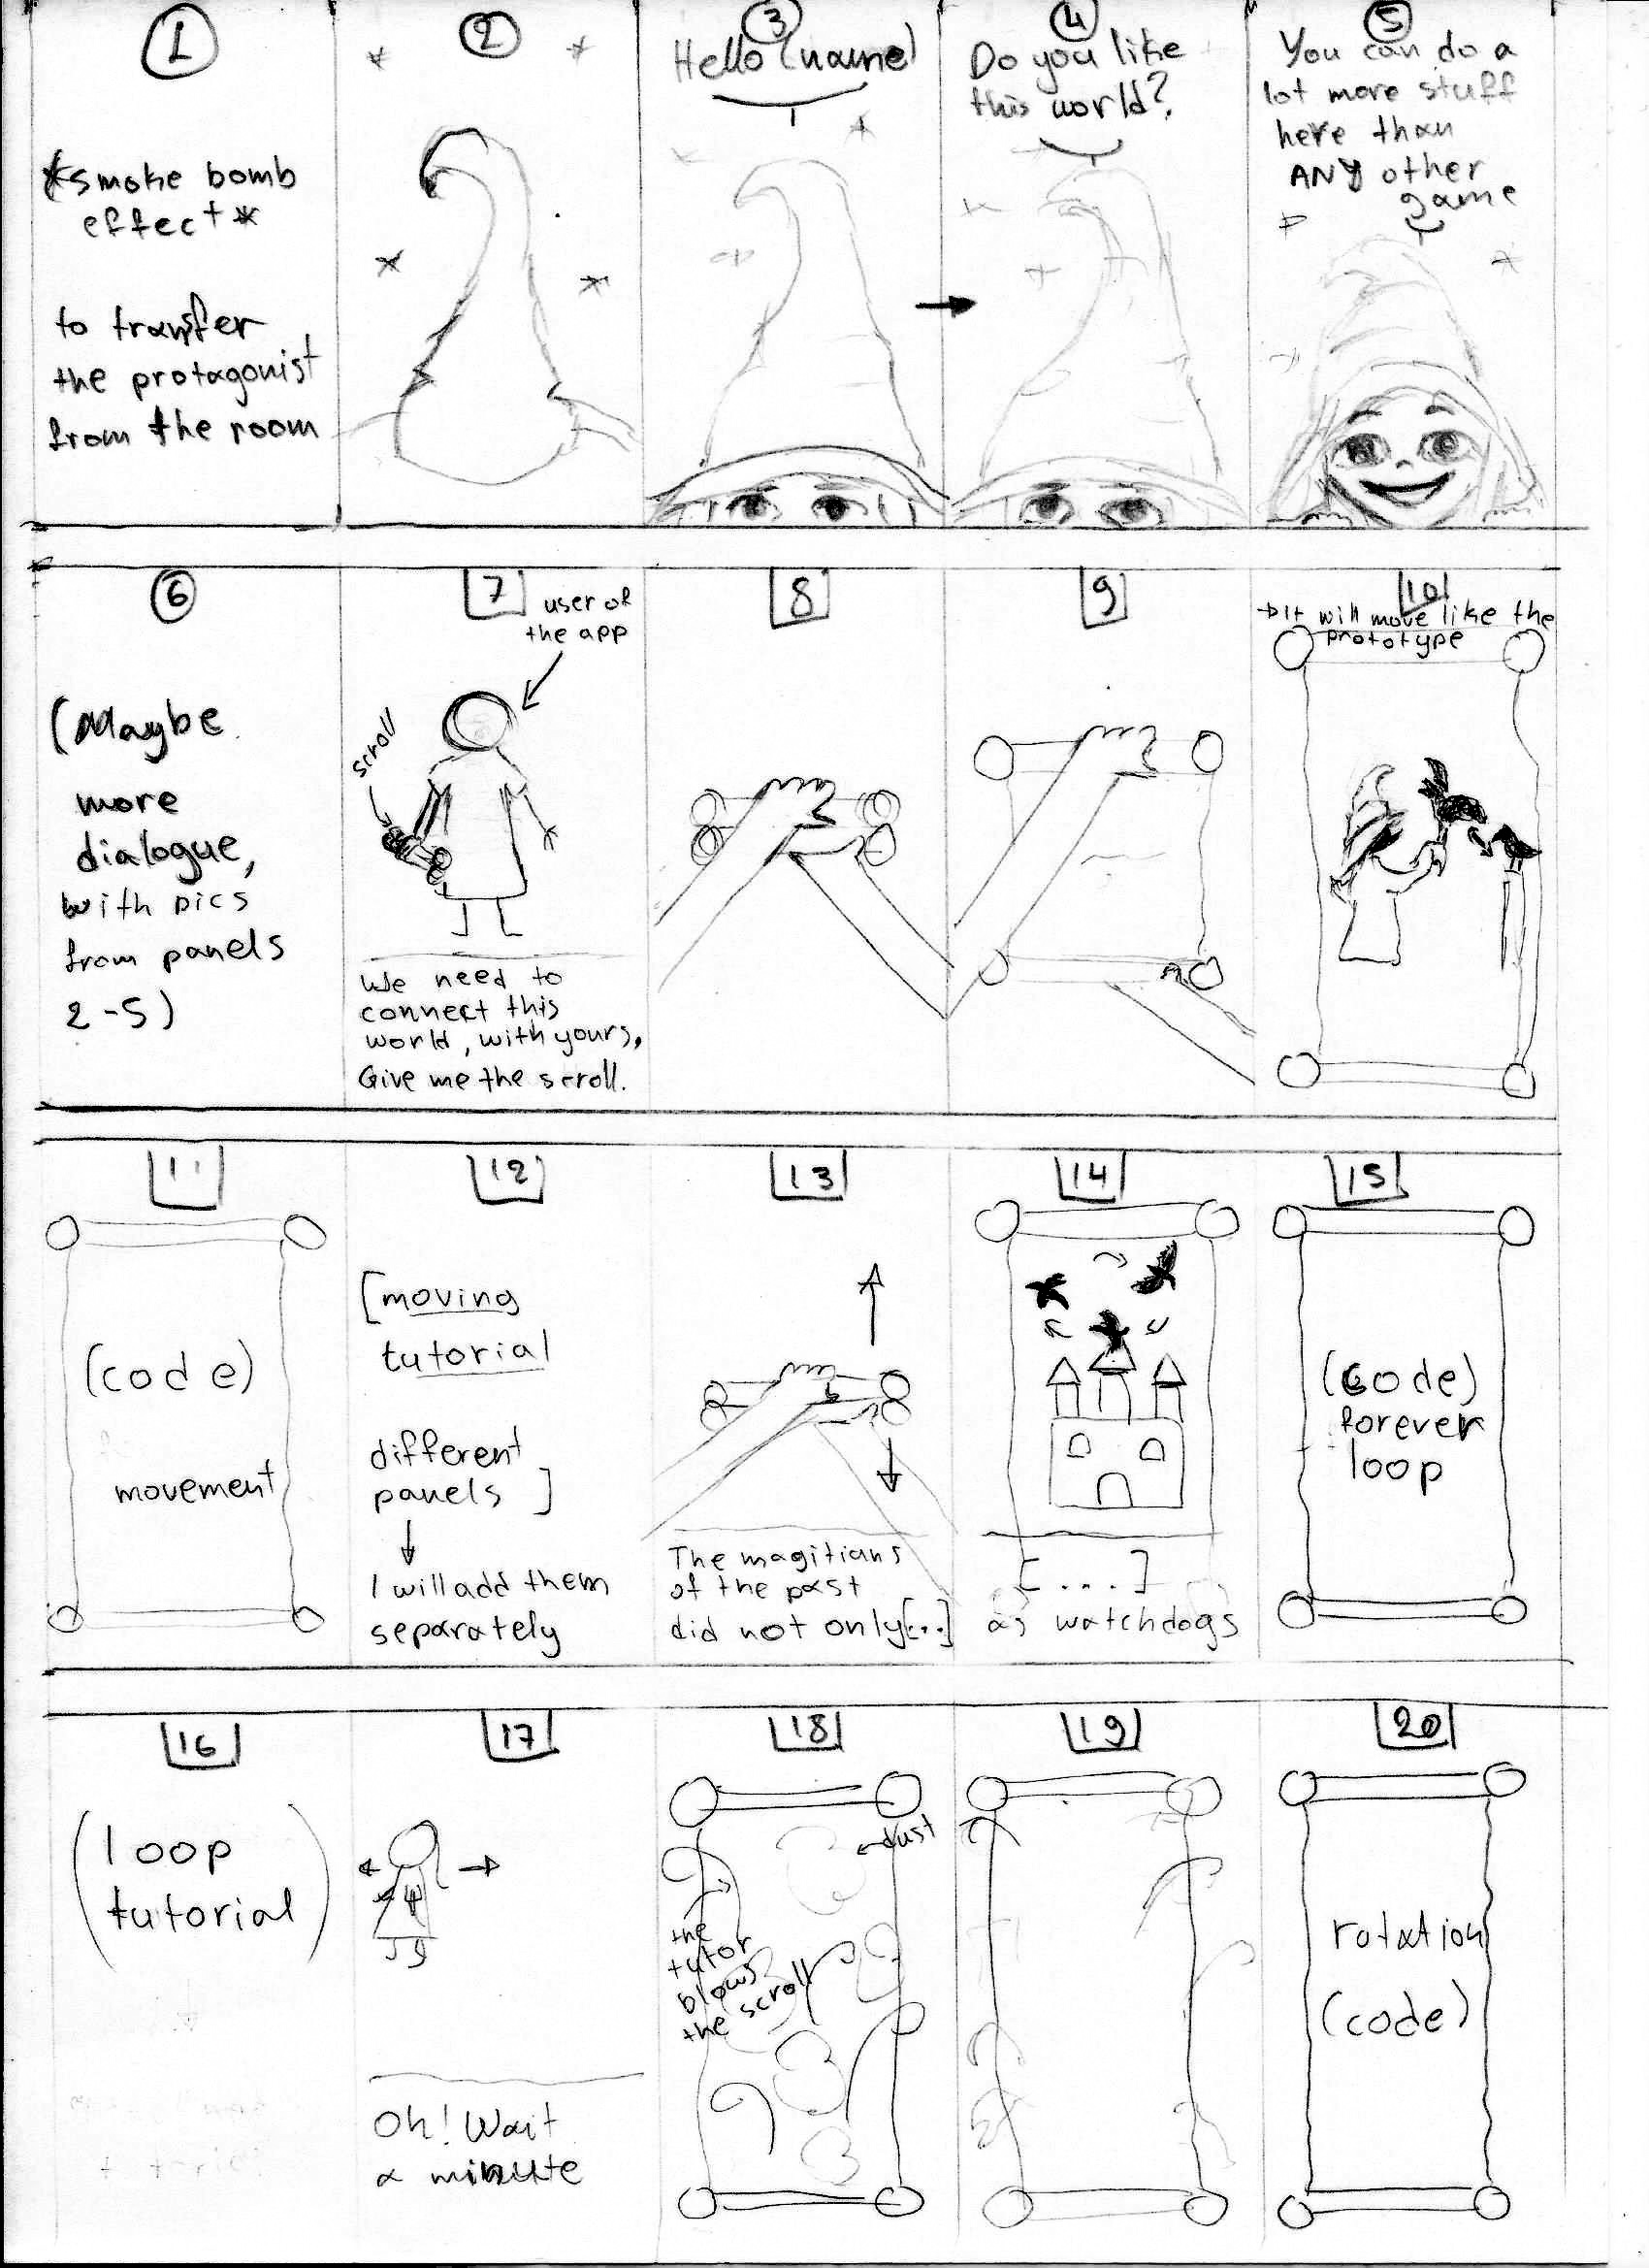 1
*smoke bomb
effect*
to transfer
the protagonist
from the room
2
3
Hello (name)
4
Do you like
this world?
5
You can do a
lot more stuff
here than
ANY other
game
6
(Maybe
more
dialogue,
with pics
from panels
2-5)
7
user of
the app
scroll
We need to
connect this
world, with yours,
Give me the scroll.
8
9
10
It will move like the
prototype
11
(code)
movement
12
[moving
tutorial
different
panels]
I will add them
separately
13
The magitians
of the past
did not only[..]
14
[....]
as watchdogs
15
(code)
forever
loop
16
(loop
tutorial)
17
Oh! Wait
a minute
18
dust
the
tutor
blows
the scroll
19
20
rotation
(code)